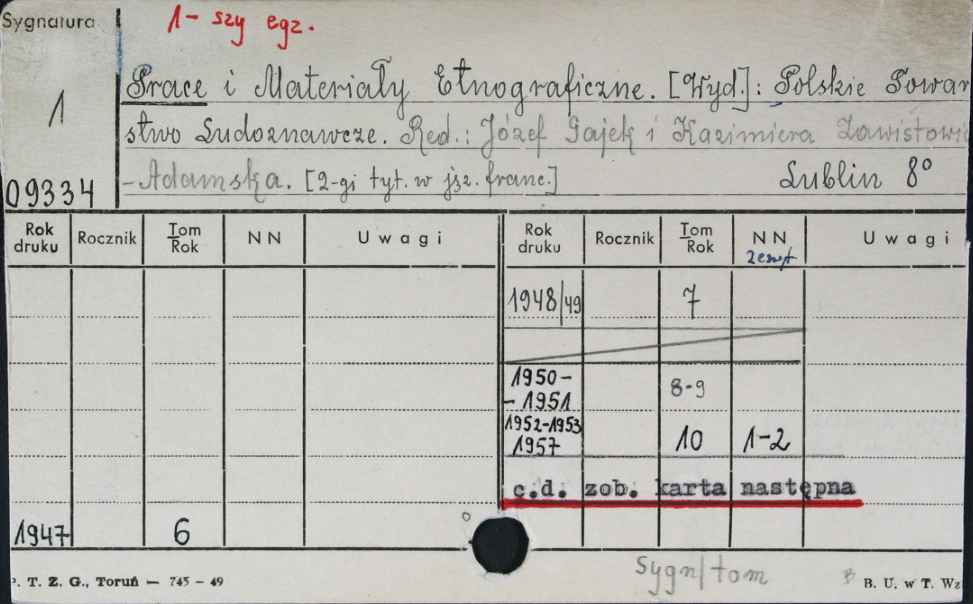 Sygnatura
1-szy egz.
1
09334
Prace i Materiały Etnograficzne. [Wyd.]: Polskie Towar
stwo Ludoznawcze. Red.: Józef Gajek i Kazimiera Zawistowi
-Adamska. [2-gi tyt. w jęz. franc.] Lublin 8°
Rok druku Rocznik Tom Rok NN Uwagi Rok druku Rocznik Tom Rok NN Uwagi
zeszyt
1948/49 7
1950-
-1951 8-9
1952-1953
1957 10 1-2
c.d. zob. karta następna
1947 6
P. T. Z. G., Toruń — 745 – 49
Sygn/tom
B. U. w T. Wz